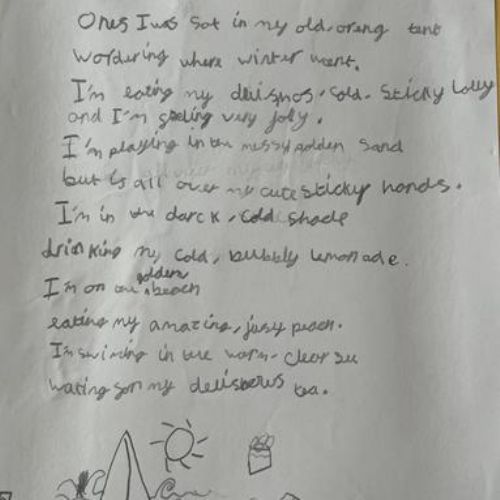 Ones I was sat in my old, oreng tent
wordering where winter went.
I'm eating my delisnos, cold, sticky lolly
and I'm feeling very joly.
I'm playing in the messy golden sand
but is all over my cute sticky hands.
I'm in the darck, cold shade
drinking my cold, bubbly lemonade.
I'm on the golden beach
eating my amazing, jusy peach.
I'm swiming in the warm, clear see
wating for my delisbows tea.